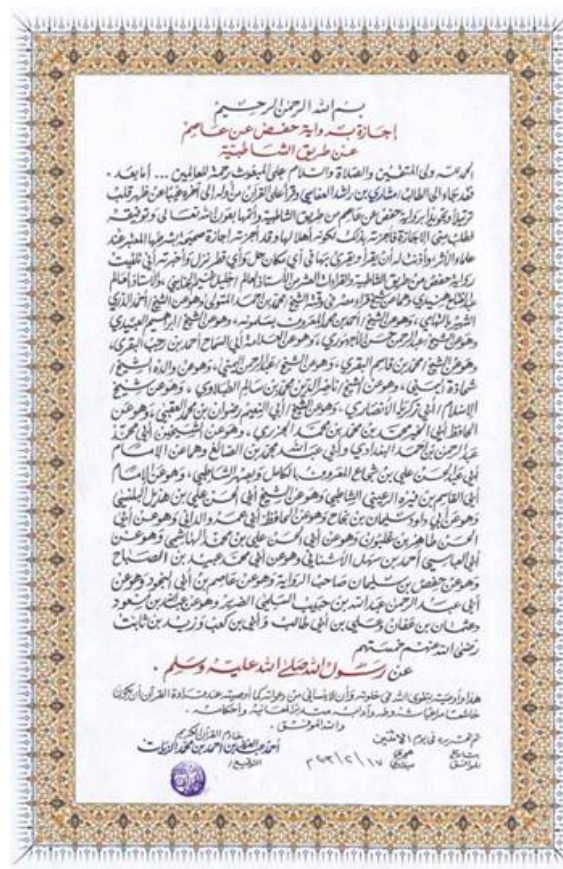 بسم الله الرحمن الرحيم
إجازة برواية حفص عن عاصم
عن طريق الشاطبية
الحمد لله ولي المتقين والصلاة والسلام على المبعوث رحمة للعالمين ... أما بعد .
فقد جاء إلي الطالب / مشاري بن راشد العفاسي وقرأ علي القرآن من أوله إلى آخره غيبًا عن ظهر قلب
ترتيلًا وتجويدًا برواية حفص عن عاصم من طريق الشاطبية وأتمها بعون الله تعالى وتوفيقه
فطلب مني الإجازة فأجزته بذلك لكونه أهلًا لها وقد أجزته إجازة صحيحة بشرطها المعتبر عند
علماء الأثر وأذنت له أن يقرأ ويقرئ بها في أي مكان حل وأي قطر نزل وأخبرته أني تلقيت
رواية حفص عن طريق الشاطبية والقراءات العشر من الأستاذ العالم / خليل غنيم الجنايني ، والأستاذ العالم
عبدالفتاح هنيدي وهما عن شيخ قراء مصر في وقته الشيخ / محمد بن أحمد المتولي وهو عن الشيخ / أحمد الدري
الشهير بالتهامي ، وهو عن الشيخ / أحمد بن محمد المعروف بسلمونه ، وهو عن الشيخ / إبراهيم العبيدي
وهو عن الشيخ / عبدالرحمن حسن الأجهوري ، وهو عن العلامة أبي السماح أحمد بن رجب البقري ،
وهو عن الشيخ / محمد بن قاسم البقري ، وهو عن الشيخ / عبدالرحمن اليمني ، وهو عن والده الشيخ /
شحاذة اليمني ، وهو عن الشيخ / ناصر الدين محمد بن سالم الطبلاوي ، وهو عن شيخ
الإسلام / أبي زكريا الأنصاري ، وهو عن الشيخ / أبي النعيم رضوان بن محمد العقبي ، وهو عن
الحافظ أبي الخير محمد بن محمد بن محمد الجزري ، وهو عن الشيخين أبي محمد
عبد الرحمن بن أحمد البغدادي وأبي عبدالله محمد بن الصائغ وهما عن الإمام
أبي عبدالحسن علي بن شجاع المعروف بالكامل وبصهر الشاطبي ، وهو عن الإمام
أبي القاسم بن فيره الرعيني الشاطبي وهو عن الشيخ أبي الحسن علي بن هذيل البلنسي
وهو عن أبي داود سليمان بن نجاح وهو عن الحافظ أبي عمرو الداني وهو عن أبي
الحسن طاهر بن غلبون وهو عن أبي الحسن علي بن محمد الهاشمي وهو عن
أبي العباسي أحمد بن سهل الأشناني وهو عن أبي محمد عبيد بن الصباح
وهو عن حفص بن سليمان صاحب الرواية وهو عن عاصم بن أبي النجود وهو عن
أبي عبد الرحمن عبدالله بن حبيب السلمي الضرير وهو عن عبدالله بن مسعود
وعثمان بن عفان وعلي بن أبي طالب وأبي بن كعب وزيد بن ثابت
رضي الله عنهم خمستهم
عن رسول الله صلى الله عليه وسلم .
هذا وأوصيته بتقوى الله في خلوته وأن لا ينساني من دعواته كما أوصيته عند قراءة القرآن أن يكون
خاشعًا مراعيًا شروطه وآدابه متدبرًا لمعانيه وأحكامه .
والله الموفق .
تم تحريره في يوم الاثنين
بتاريخ هجري
الموافق ميلادي ١٧ / ٢ /
خادم القرآن الكريم
أحمد عبدالعزيز بن أحمد بن محمد الزيات
التوقيع /